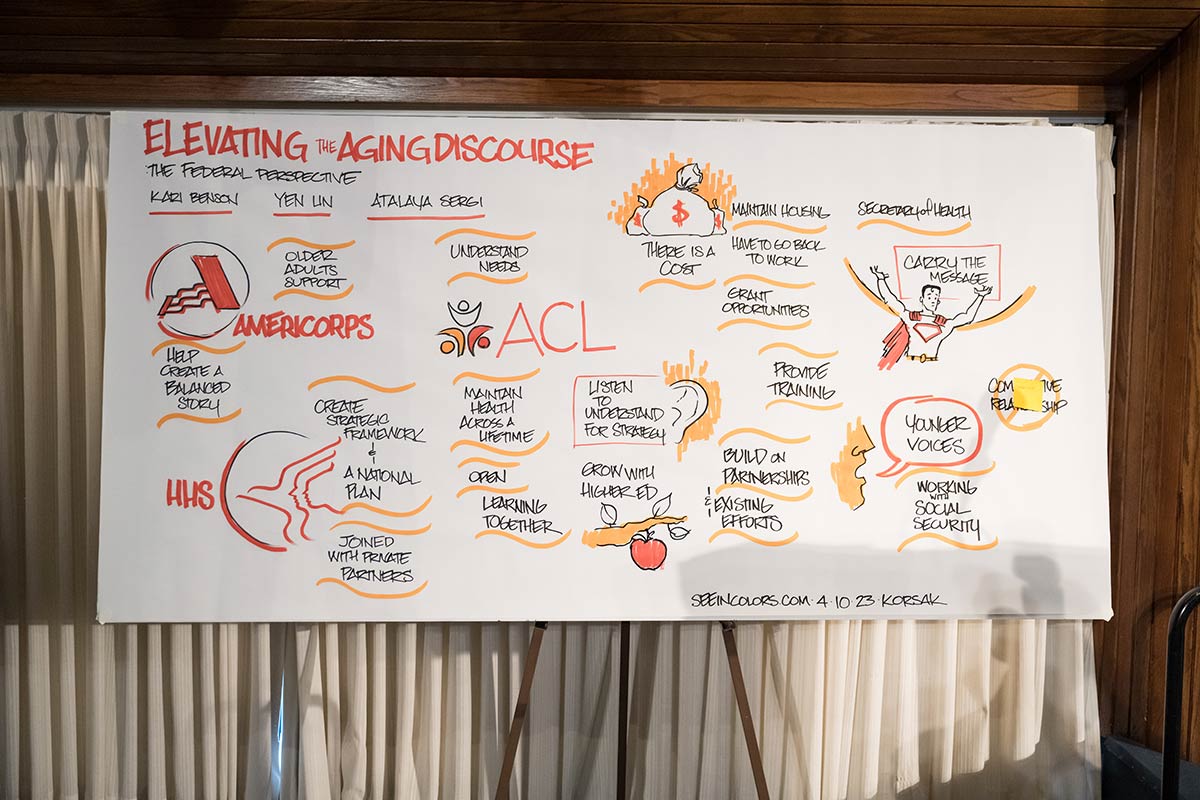 ELEVATING THE AGING DISCOURSE
THE FEDERAL PERSPECTIVE
KARI BENSON
YEN LIN
ATALAYA SERGI
OLDER
ADULTS
SUPPORT
AMERICORPS
HELP
CREATE A
BALANCED
STORY
CREATE
STRATEGIC
FRAMEWORK
&
A NATIONAL
PLAN
HHS
JOINED
WITH PRIVATE
PARTNERS
UNDERSTAND
NEEDS
ACL
MAINTAIN
HEALTH
ACROSS A
LIFETIME
OPEN
LEARNING
TOGETHER
$
$
$
THERE IS A
COST
LISTEN
TO
UNDERSTAND
FOR STRATEGY
GROW WITH
HIGHER ED
MAINTAIN HOUSING
HAVE TO GO BACK
TO WORK
GRANT
OPPORTUNITIES
PROVIDE
TRAINING
BUILD ON
PARTNERSHIPS
& EXISTING
EFFORTS
SECRETARY of HEALTH
CARRY THE
MESSAGE
YOUNGER
VOICES
WORKING
WITH
SOCIAL
SECURITY
SEEINCOLORS.COM · 4 · 10 · 23 · KORSAK